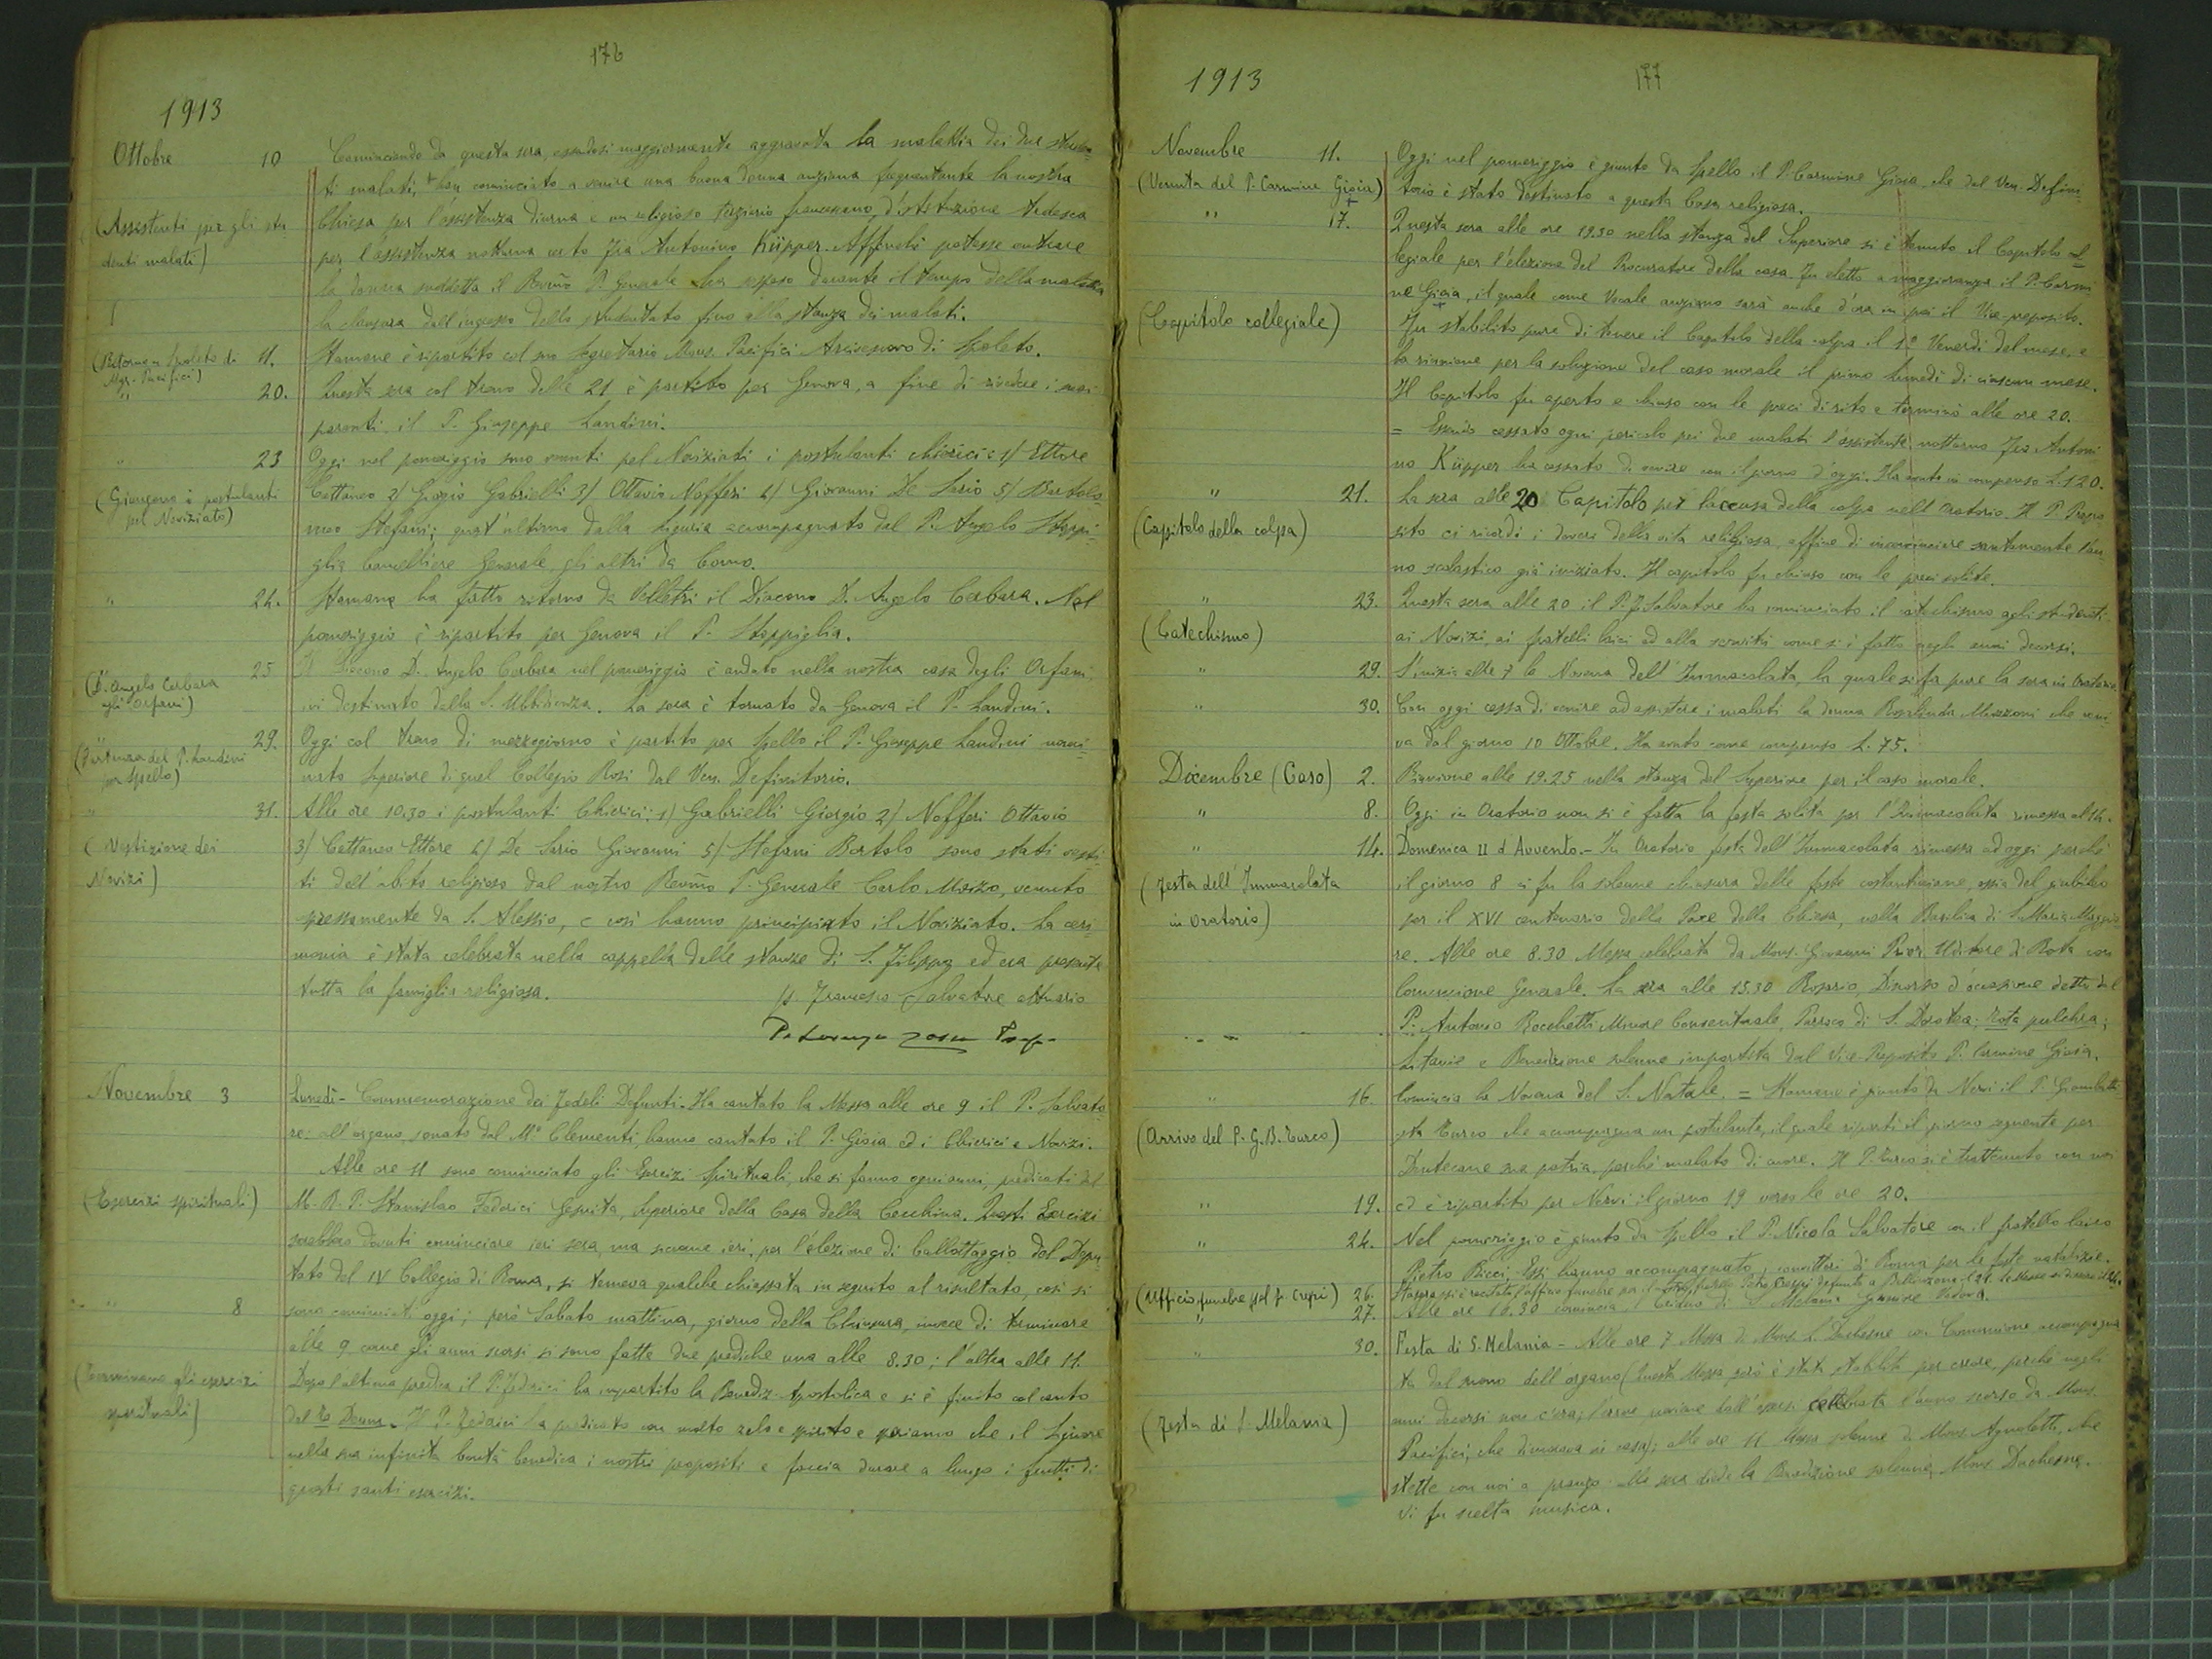 176
1913
Ottobre 10 Cominciando da questa sera, essendosi maggiormente aggravata la malattia dei due studen-
ti malati, han cominciato a venire una buona donna anziana frequentante la nostra
(Assistenti per gli stu- Chiesa per l'assistenza diurna e un religioso terziario francescano, d'istituzione tedesca
denti malati) per l'assistenza notturna certo Fra Antonino Küpper. Affinché potesse entrare
la donna suddetta il Revmo P. Generale ha sospeso durante il tempo della malattia
la clausura dall'ingresso dello studentato fino alla stanza dei malati.
(Ritorna a Spoleto di Mgr. Pacifici) 11. Stamane è ripartito col suo Segretario Mons. Pacifici Arcivescovo di Spoleto.
" 20. Questa sera col treno delle 21 è partito per Genova, a fine di rivedere i suoi
parenti il P. Giuseppe Landini.
" 23 Oggi nel pomeriggio sono venuti pel Noviziato i postulanti chierici: 1/ Ettore
(Giungono i postulanti Cattaneo 2/ Giorgio Gabrielli 3/ Ottavio Nofferi 4/ Giovanni De Sario 5/ Bartolo-
pel Noviziato) meo Stefani; quest'ultimo dalla Liguria accompagnato dal P. Angelo Stoppi-
glia Cancelliere Generale, gli altri da Como.
" 24. Stamane ha fatto ritorno da Velletri il Diacono D. Angelo Cerbara. Nel
pomeriggio è ripartito per Genova il P. Stoppiglia.
(D. Angelo Cerbara 25 Il Diacono D. Angelo Cerbara nel pomeriggio è andato nella nostra casa degli Orfani,
agli Orfani) ivi destinato dalla S. Ubbidienza. La sera è tornato da Genova il P. Landini.
(Partenza del P. Landini 29. Oggi col treno di mezzogiorno è partito per Spello il P. Giuseppe Landini nomi-
per Spello) nato Superiore di quel Collegio Rosi dal Ven. Definitorio.
" 31. Alle ore 10.30 i postulanti Chierici: 1) Gabrielli Giorgio 2/ Nofferi Ottavio
(Vestizione dei 3/ Cattaneo Ettore 4/ De Sario Giovanni 5/ Stefani Bartolo sono stati vesti-
Novizi) ti dell'abito religioso dal nostro Revmo P. Generale Carlo Moizo, venuto
espressamente da S. Alessio, e così hanno principiato il Noviziato. La ceri-
monia è stata celebrata nella cappella delle stanze di S. Filippo ed era presente
tutta la famiglia religiosa. Francesco Salvatore attuario
P. Lorenzo
Novembre 3 Lunedì - Commemorazione dei Fedeli Defunti. Ha cantato la Messa alle ore 9 il P. Salvato-
re: all'organo, sonato dal M° Clementi, hanno cantato il P. Gioia ed i Chierici e Novizi.
Alle ore 11 sono cominciato gli Esercizi Spirituali, che si fanno ogni anno, predicati dal
(Esercizi spirituali) M. R. P. Stanislao Federici Gesuita, Superiore della Casa della Cecchina. Questi Esercizi
sarebbero dovuti cominciare ieri sera, ma siccome ieri, per l'elezione di ballottaggio del Depu-
tato del IV Collegio di Roma, si temeva qualche chiassata in seguito al risultato, così si
" 8 sono cominciati oggi; però Sabato mattina, giorno della Chiusura, invece di terminare
alle 9 come gli anni scorsi si sono fatte due prediche una alle 8.30; l'altra alle 11.
(Terminano gli esercizi Dopo l'ultima predica il P. Federici ha impartito la Benediz. Apostolica e si è finito col canto
spirituali) del Te Deum. Il P. Federici ha predicato con molto zelo e spirito e speriamo che il Signore
nella sua infinita bontà benedica i nostri propositi e faccia durare a lungo i frutti di
questi santi esercizi.
177
1913
Novembre 11. Oggi nel pomeriggio è giunto da Spello il P. Carmine Gioia che dal Ven. Defini-
(Venuta del P. Carmine Gioia) torio è stato destinato a questa Casa religiosa.
" 17. Questa sera alle ore 19.30 nella stanza del Superiore si è tenuto il Capitolo col-
legiale per l'elezione del Procuratore della casa. Fu eletto a maggioranza il P. Carmi-
ne Gioia, il quale come Vocale anziano sarà anche d'ora in poi il Vice-preposito.
(Capitolo collegiale) Fu stabilito pure di tenere il Capitolo della colpa il 1° Venerdì del mese, e
la riunione per la soluzione del caso morale il primo lunedì di ciascun mese.
Il Capitolo fu aperto e chiuso con le preci di rito e terminò alle ore 20.
= Essendo cessato ogni pericolo pei due malati l'assistente notturno Fra Antoni-
no Küpper ha cessato di venire con il giorno d'oggi. Ha avuto in compenso L. 120.
" 21. La sera alle 20 Capitolo per l'accusa della colpa nell'Oratorio. Il P. Prepo-
(Capitolo della colpa) sito ci ricordò i doveri della vita religiosa, affine di incominciare santamente l'an-
no scolastico già iniziato. Il capitolo fu chiuso con le preci solite.
" 23. Questa sera alle 20 il P. F. Salvatore ha cominciato il catechismo agli studenti
(Catechismo) ai Novizi, ai fratelli laici ed alla servitù come si è fatto negli anni decorsi.
" 29. S'inizia alle 7 la Novena dell'Immacolata, la quale si fa pure la sera in Oratorio.
" 30. Con oggi cessa di venire ad assistere i malati la donna Rosalinda Mazzoni che veni-
va dal giorno 10 Ottobre. Ha avuto come compenso L. 75.
Dicembre (Caso) 2. Riunione alle 19.25 nella stanza del Superiore per il caso morale.
" 8. Oggi in Oratorio non si è fatta la festa solita per l'Immacolata rimessa al 14.
" 14. Domenica II d'Avvento. - In Oratorio festa dell'Immacolata rimessa ad oggi perché
(Festa dell'Immacolata il giorno 8 vi fu la solenne chiusura delle feste costantiniane, ossia del giubileo
in Oratorio) per il XVI centenario della Pace della Chiesa, nella Basilica di S. Maria Maggio-
re. Alle ore 8.30 Messa celebrata da Mons. Giovanni Prior Uditore di Rota con
Comunione Generale. La sera alle 15.30 Rosario, Discorso d'occasione detto dal
P. Antonio Rocchetti Minore Conventuale, Parroco di S. Dorotea: Tota pulchra;
Litanie e Benedizione solenne impartita dal Vice Preposito P. Carmine Gioia.
" 16. Comincia la Novena del S. Natale. = Stamane è giunto da Nervi il P. Giambatti-
(Arrivo del P. G. B. Turco) sta Turco che accompagna un postulante, il quale ripartì il giorno seguente per
Dentecane sua patria, perché malato di cuore. Il P. Turco si è trattenuto con noi
" 19. ed è ripartito per Nervi il giorno 19 verso le ore 20.
" 24. Nel pomeriggio è giunto da Spello il P. Nicola Salvatore con il fratello laico
Pietro Ricci. Essi hanno accompagnato i convittori di Roma per le feste natalizie.
(Ufficio funebre pel fr. Crespi) 26. Stasera si è recitato l'ufficio funebre per il fratello Pietro Crespi defunto a Bellinzona il 21.
" 27. Alle ore 16.30 comincia il triduo di S. Melania Giuniore Vedova.
" 30. Festa di S. Melania - Alle ore 7 Messa di Mons. L. Duchesne con Comunione accompagna-
ta dal suono dell'organo (Questa Messa però è stata stabilita per errore, perché negli
(Festa di S. Melania) anni decorsi non c'era; celebrata l'anno scorso da Mons.
Pacifici, che dimorava in casa); alle ore 11 Messa solenne di Mons. Agnoletti, che
stette con noi a pranzo. Alla sera diede la Benedizione solenne Mons. Duchesne.
Vi fu scelta musica.